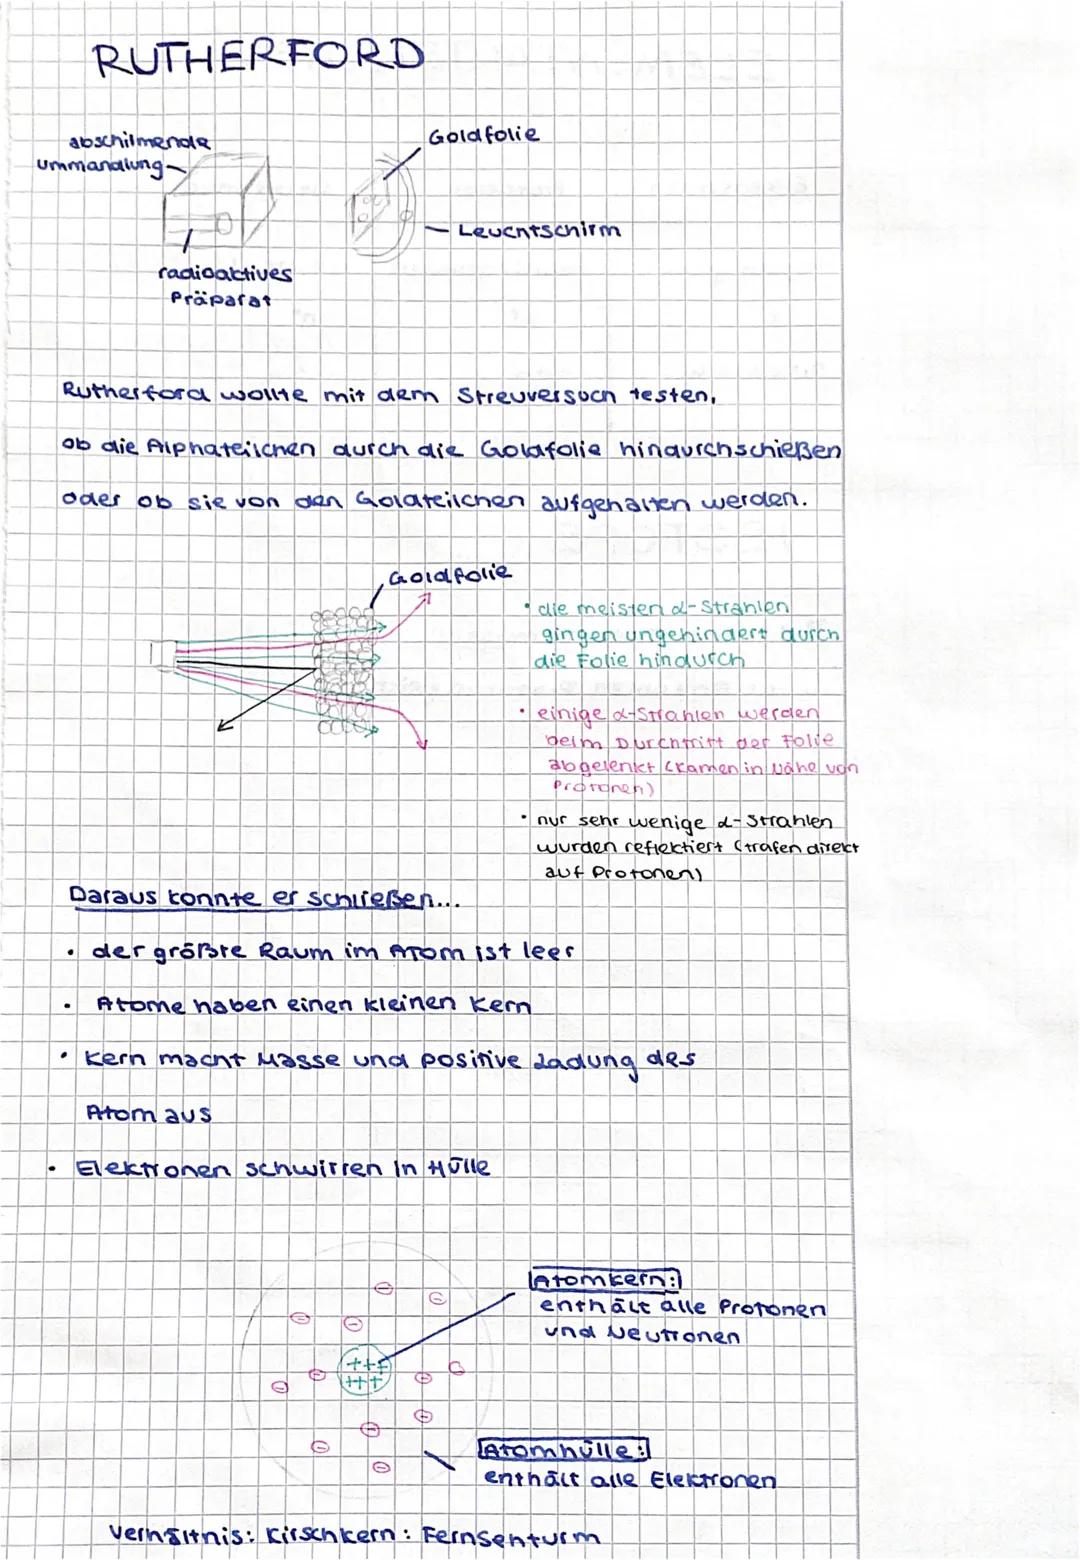 RUTHERFORD
abschilmende
Ummandlung
Goldfolie
Leuchtschirm
radioaktives
Präparat
Rutherford wollte mit dem Streuversuch testen,
ob die Alphateilchen durch die Goldfolie hindurchschießen
oder ob sie von den Goldteilchen aufgehalten werden.
Goldfolie
• die meisten α-Strahlen
gingen ungehindert durch
die Folie hindurch
• einige α-Strahlen werden
beim Durchtritt der Folie
abgelenkt (kamen in Nähe von
Protonen)
• nur sehr wenige α-Strahlen
wurden reflektiert (trafen direkt
auf Protonen)
Daraus konnte er schließen...
• der größte Raum im Atom ist leer
• Atome haben einen kleinen Kern
• Kern macht Masse und positive Ladung des
Atom aus
• Elektronen schwirren in Hülle
Atomkern:
enthält alle Protonen
und Neutronen
+++
+++
Atomhülle:
enthält alle Elektronen
Verhältnis: Kirschkern : Fernsenturm